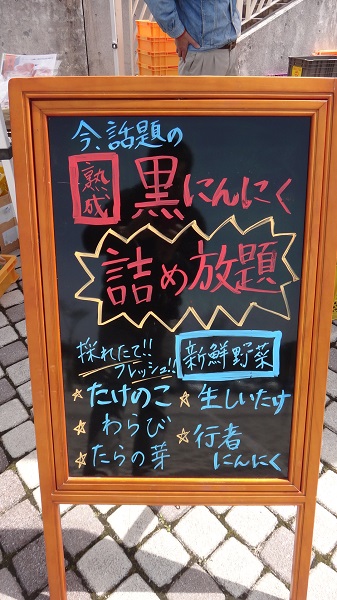 今、話題の
熟成 黒にんにく
詰め放題
採れたて!!
フレッシュ!!
新鮮野菜
☆たけのこ ☆生しいたけ
☆わらび ☆行者
☆たらの芽 にんにく